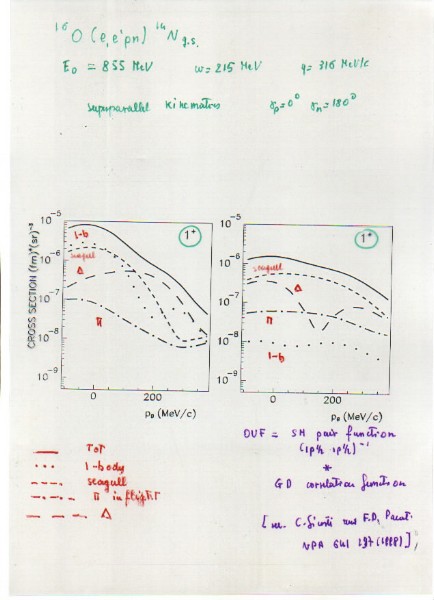 ¹⁶O (e, e'pn) ¹⁴N g.s.
E₀ = 855 MeV ω = 215 MeV q = 316 MeV/c
superparallel kinematics γp = 0° γn = 180°
10⁻⁵
10⁻⁶
10⁻⁷
10⁻⁸
10⁻⁹
CROSS SECTION (fm)⁴(sr)⁻³
1⁺
1-b
seagull
Δ
π
0
200
pB (MeV/c)
10⁻⁵
10⁻⁶
10⁻⁷
10⁻⁸
10⁻⁹
1⁺
seagull
Δ
π
1-b
0
200
pB (MeV/c)
TOT
1-body
seagull
π in flight
Δ
= SM pair function
(1p½ 1p½)⁻¹
*
GD correlation function
[ C. Giusti and F.D. Pacati
NPA (1998) ]